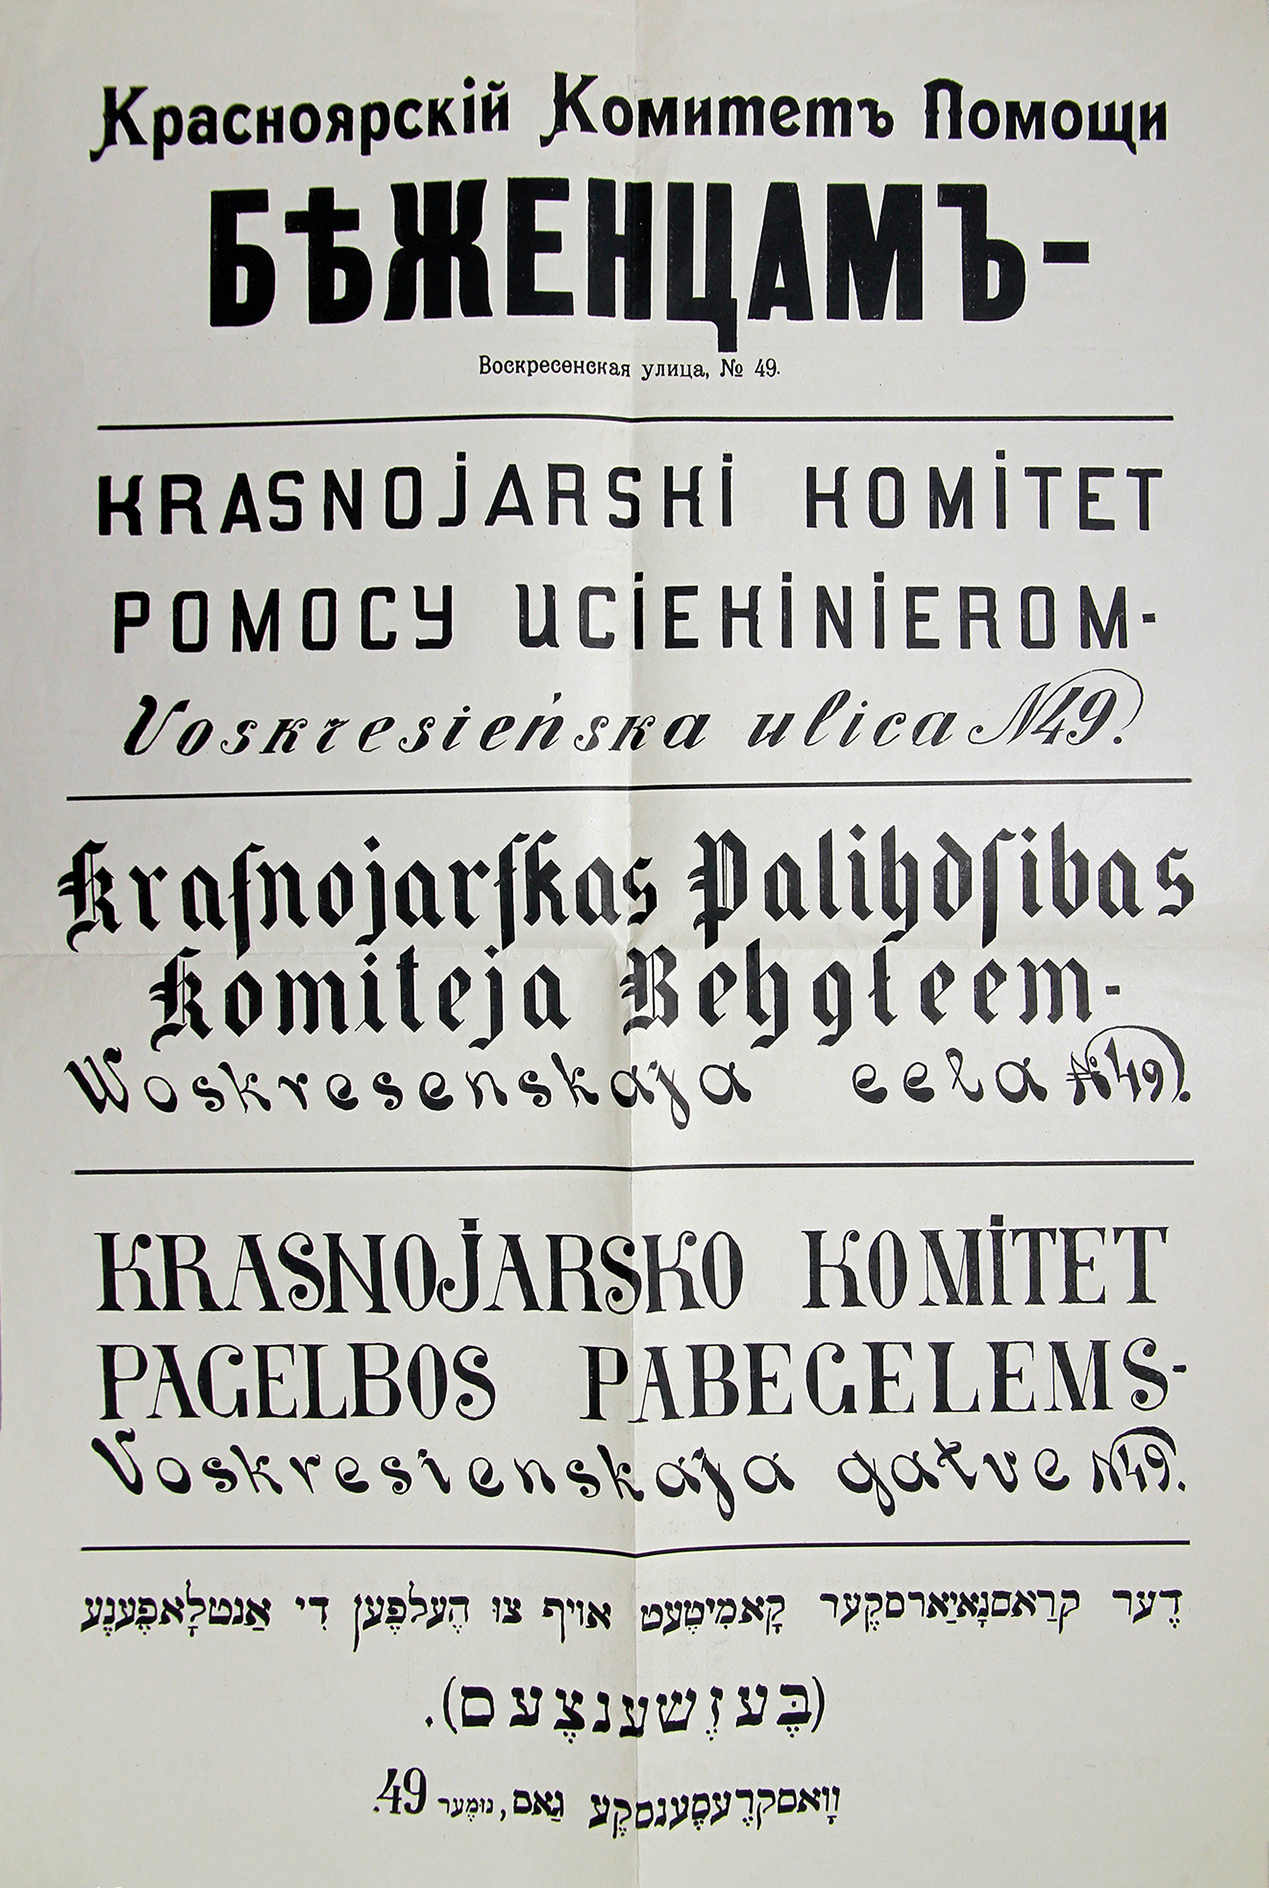 Красноярскій Комитетъ Помощи
БѢЖЕНЦАМЪ-
Воскресенская улица, № 49.
KRASNOJARSKI KOMITET
POMOCY UCIEKINIEROM-
Voskresieńska ulica N49.
Kraſnojarſkas Palihdſibas
Komiteja Behgłeem-
Woskresenskaja eela №49.
KRASNOJARSKO KOMITET
PAGELBOS PABEGELEMS-
Voskresienskaja gatve N49.
דֶער קרַאסנָאיַארסקֶער קָאמִיטֶעט אויף צו הֶעלפֶען דִי אַנטלָאפֶענֶע
(בֶּעזְשֶענצֶעס).
וָואסקרֶעסֶענסקֶע גַאס, נומֶער 49.